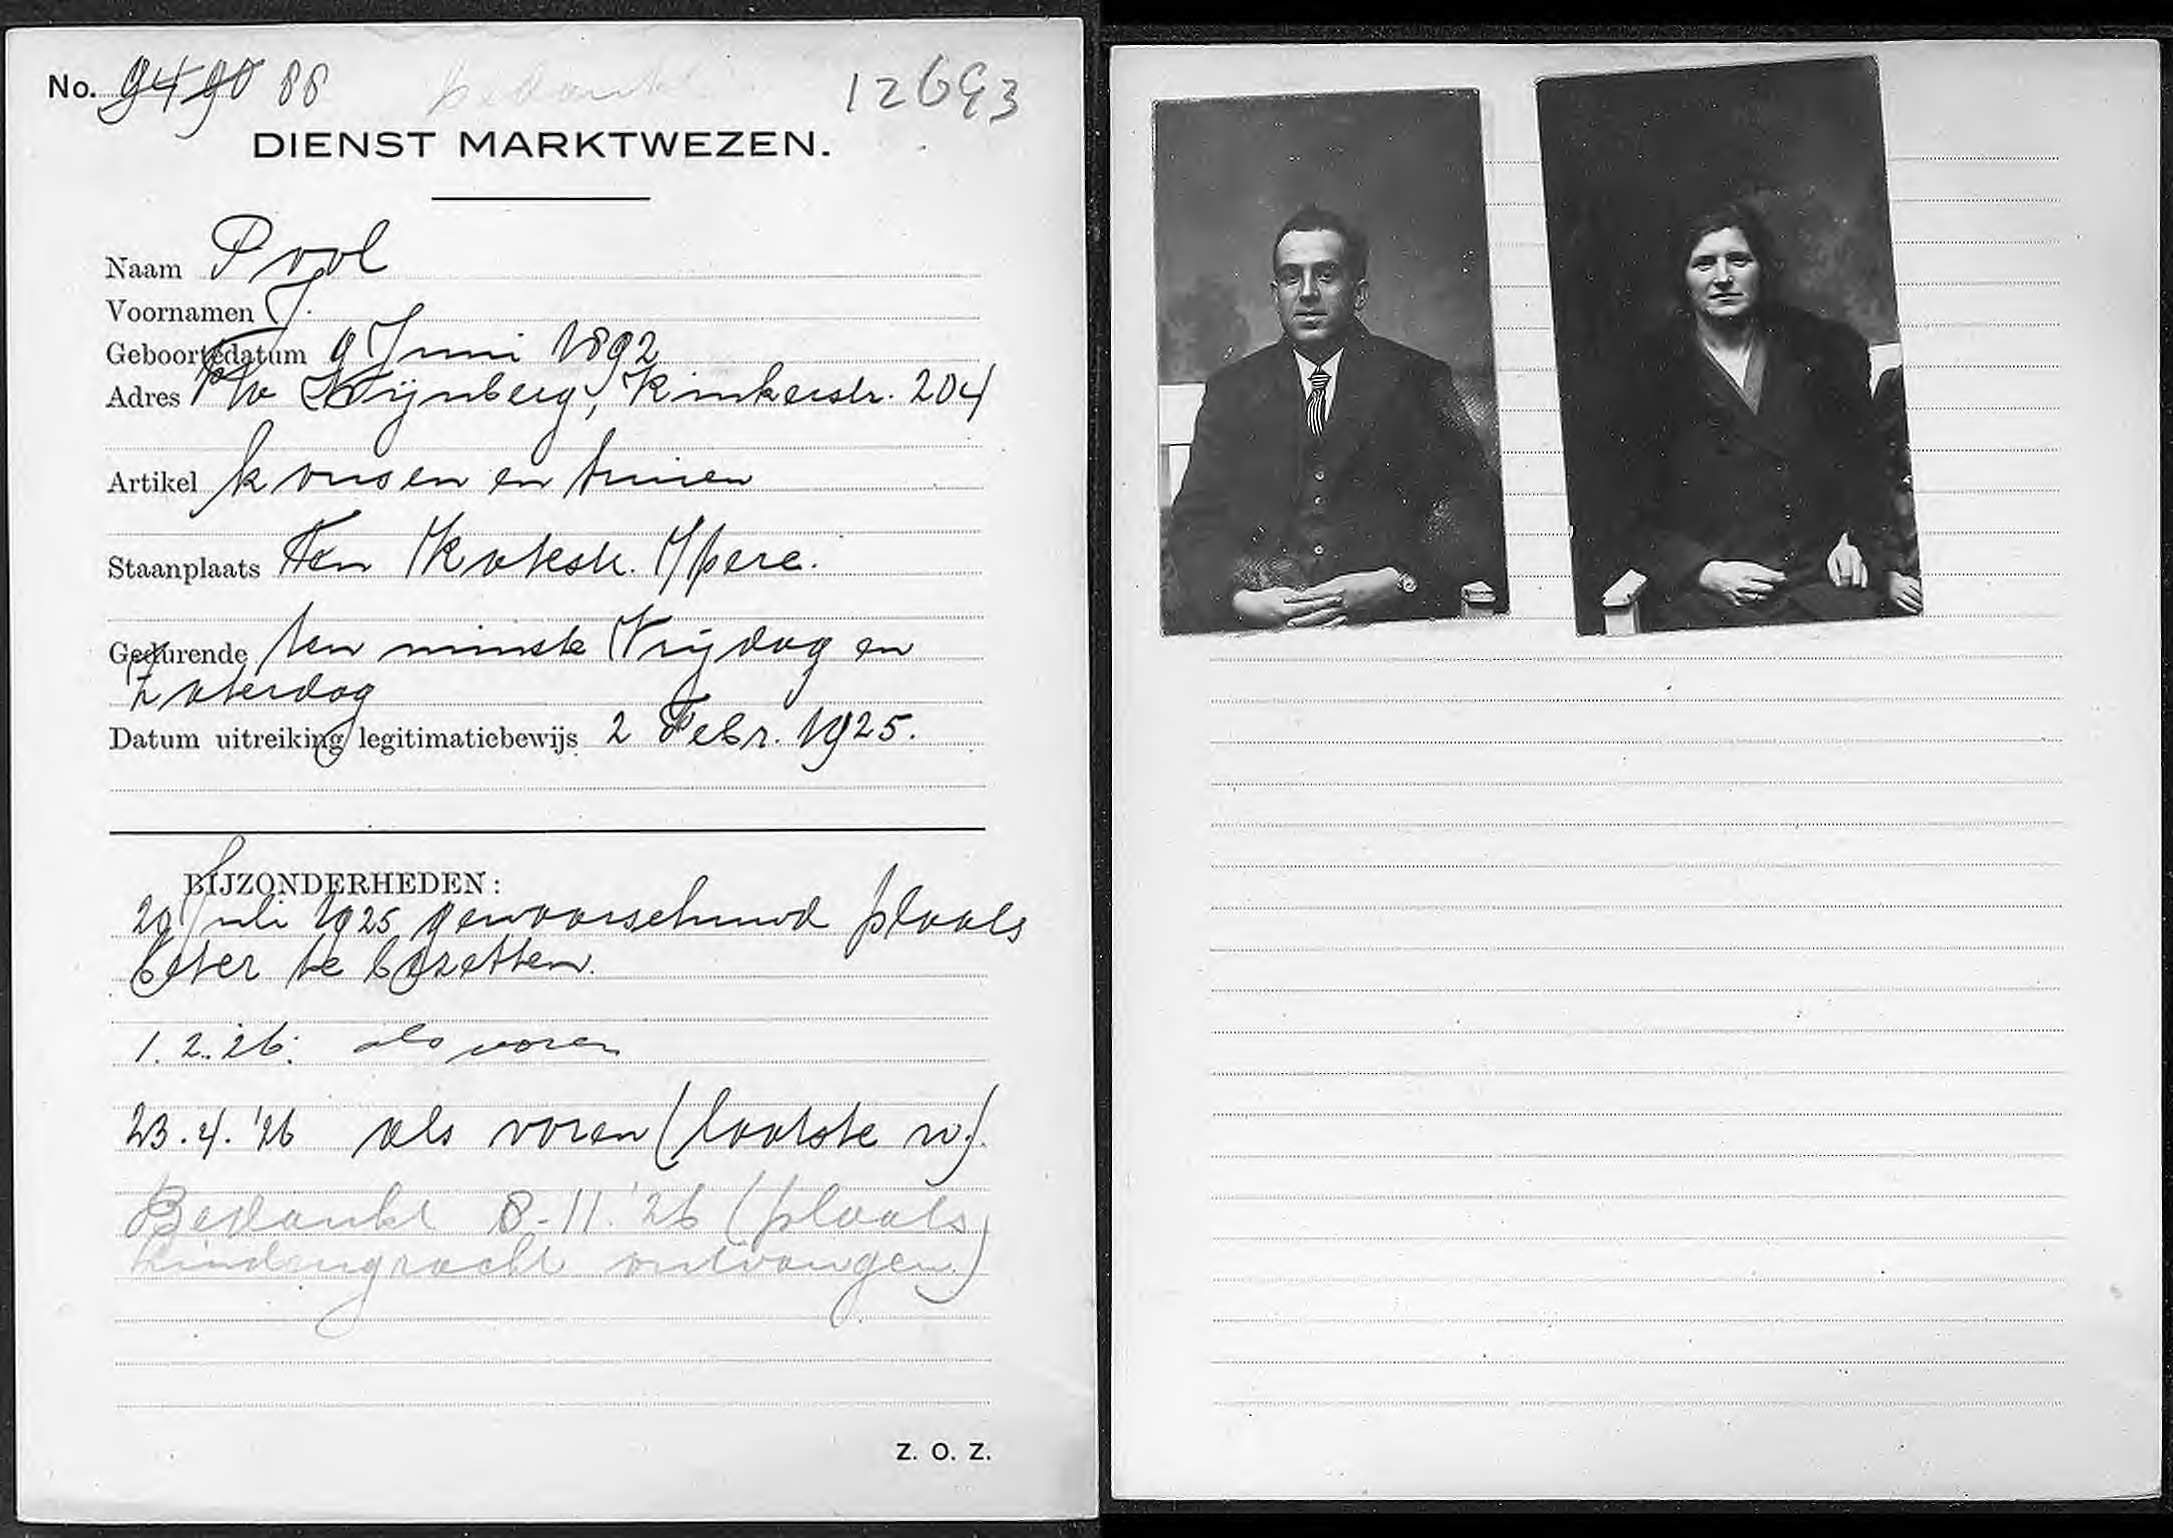 No. 9490 88 Bedankt 12693
DIENST MARKTWEZEN.
Naam Pool
Voornamen J.
Geboortedatum 9 Juni 1892
Adres p/a Wijnberg, Kinkerstr. 204
Artikel kousen en truien
Staanplaats Ten Katestr. IJpere.
Gedurende ten minste Vrijdag en
Zaterdag
Datum uitreiking legitimatiebewijs 2 Febr. 1925.
BIJZONDERHEDEN:
29 Juli 1925 gewaarschuwd plaats
beter te bezetten.
1.2.26. als voren
23.4.'26 als voren (laatste w.)
Bedankt 8-11.'26 (plaats
Lindengracht ontvangen)
Z. O. Z.